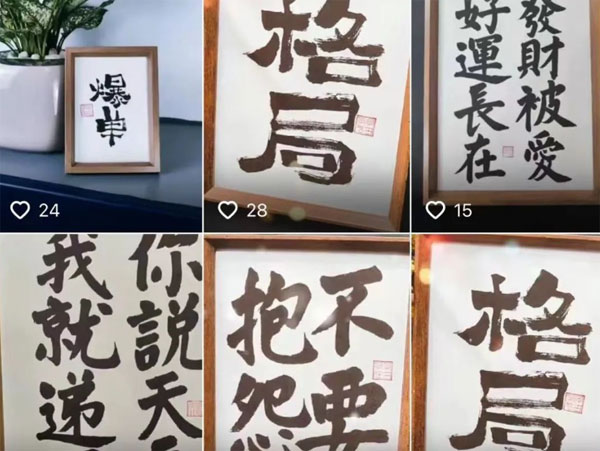 爆
24
格局
28
發財被愛
好運長在
15
你説天
我就递
不要
抱怨
格局